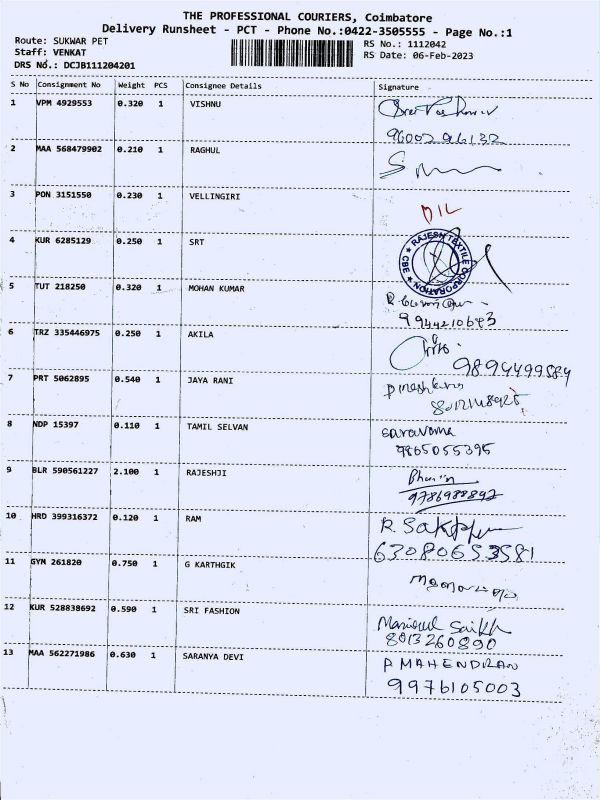 THE PROFESSIONAL COURIERS, Coimbatore
Delivery Runsheet - PCT - Phone No.:0422-3505555 - Page No.:1
Route: SUKWAR PET
RS No.: 1112042
Staff: VENKAT
RS Date: 06-Feb-2023
DRS No.: DCJB111204201
S No Consignment No Weight PCS Consignee Details Signature
1 VPM 4929553 0.320 1 VISHNU
9600296132
2 MAA 568479902 0.210 1 RAGHUL
3 PON 3151550 0.230 1 VELLINGIRI
4 KUR 6285129 0.250 1 SRT
RAJESH TEXTILE CORPORATION CBE
5 TUT 218250 0.320 1 MOHAN KUMAR
6 TRZ 335446975 0.250 1 AKILA
9894499584
7 PRT 5062895 0.540 1 JAYA RANI
8 NDP 15397 0.110 1 TAMIL SELVAN
Saravana
9865055395
9 BLR 590561227 2.100 1 RAJESHJI
9786988892
10 HRD 399316372 0.120 1 RAM
63080653581
11 GYM 261820 0.750 1 G KARTHGIK
12 KUR 528838692 0.590 1 SRI FASHION
Saikh
8013260890
13 MAA 562271986 0.630 1 SARANYA DEVI
P MAHENDRAN
9976105003